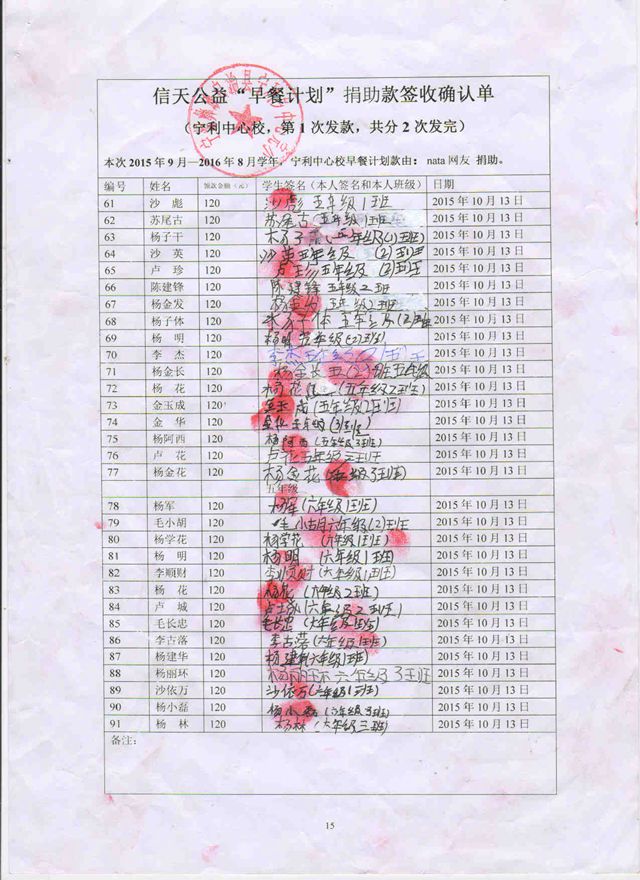 信天公益“早餐计划”捐助款签收确认单
(宁利中心校，第 1 次发款，共分 2 次发完)
本次 2015 年 9 月—2016 年 8 月学年，宁利中心校早餐计划款由： nata 网友 捐助。
编号 姓名 领款金额（元） 学生签名（本人签名和本人班级） 日期
61 沙 彪 120 沙彪 五年级1班 2015 年 10 月 13 日
62 苏尾古 120 苏尾古 五年级1班 2015 年 10 月 13 日
63 杨子干 120 杨子 五年级(1)班 2015 年 10 月 13 日
64 沙 英 120 沙英五年级 (2)班 2015 年 10 月 13 日
65 卢 珍 120 卢珍五年级 (2)班 2015 年 10 月 13 日
66 陈建锋 120 陈建锋 五年级2班 2015 年 10 月 13 日
67 杨金发 120 杨金发 五年级2班 2015 年 10 月 13 日
68 杨子体 120 杨子体 五年级(2)班 2015 年 10 月 13 日
69 杨 明 120 杨明 五年级(2)班 2015 年 10 月 13 日
70 李 杰 120 李杰 2015 年 10 月 13 日
71 杨金长 120 杨金长 五(2)班五年级 2015 年 10 月 13 日
72 杨 花 120 杨花 (五年级2班) 2015 年 10 月 13 日
73 金玉成 120 金玉成(五年级2班) 2015 年 10 月 13 日
74 金 华 120 金华 五年级(3)班 2015 年 10 月 13 日
75 杨阿西 120 杨阿西(五年级3班) 2015 年 10 月 13 日
76 卢 花 120 卢花五年级三班 2015 年 10 月 13 日
77 杨金花 120 杨金花(五年级3班) 2015 年 10 月 13 日
六年级
78 杨军 120 杨军(六年级1班) 2015 年 10 月 13 日
79 毛小胡 120 毛小胡六年级(2)班 2015 年 10 月 13 日
80 杨学花 120 杨学花 (六年级1班) 2015 年 10 月 13 日
81 杨 明 120 杨明 (六年级1班) 2015 年 10 月 13 日
82 李顺财 120 李顺财(六年级1班) 2015 年 10 月 13 日
83 杨 花 120 杨花 (六年级2班) 2015 年 10 月 13 日
84 卢 城 120 卢城(六年级2班) 2015 年 10 月 13 日
85 毛长忠 120 毛长忠 (六年级1班) 2015 年 10 月 13 日
86 李古落 120 李古落(六年级1班) 2015 年 10 月 13 日
87 杨建华 120 杨建华(六年级1班) 2015 年 10 月 13 日
88 杨丽环 120 杨丽环 六年级 3班 2015 年 10 月 13 日
89 沙依万 120 沙依万(六年级1班) 2015 年 10 月 13 日
90 杨小磊 120 杨小磊(六年级3班) 2015 年 10 月 13 日
91 杨 林 120 杨林(六年级三班) 2015 年 10 月 13 日
备注：
15